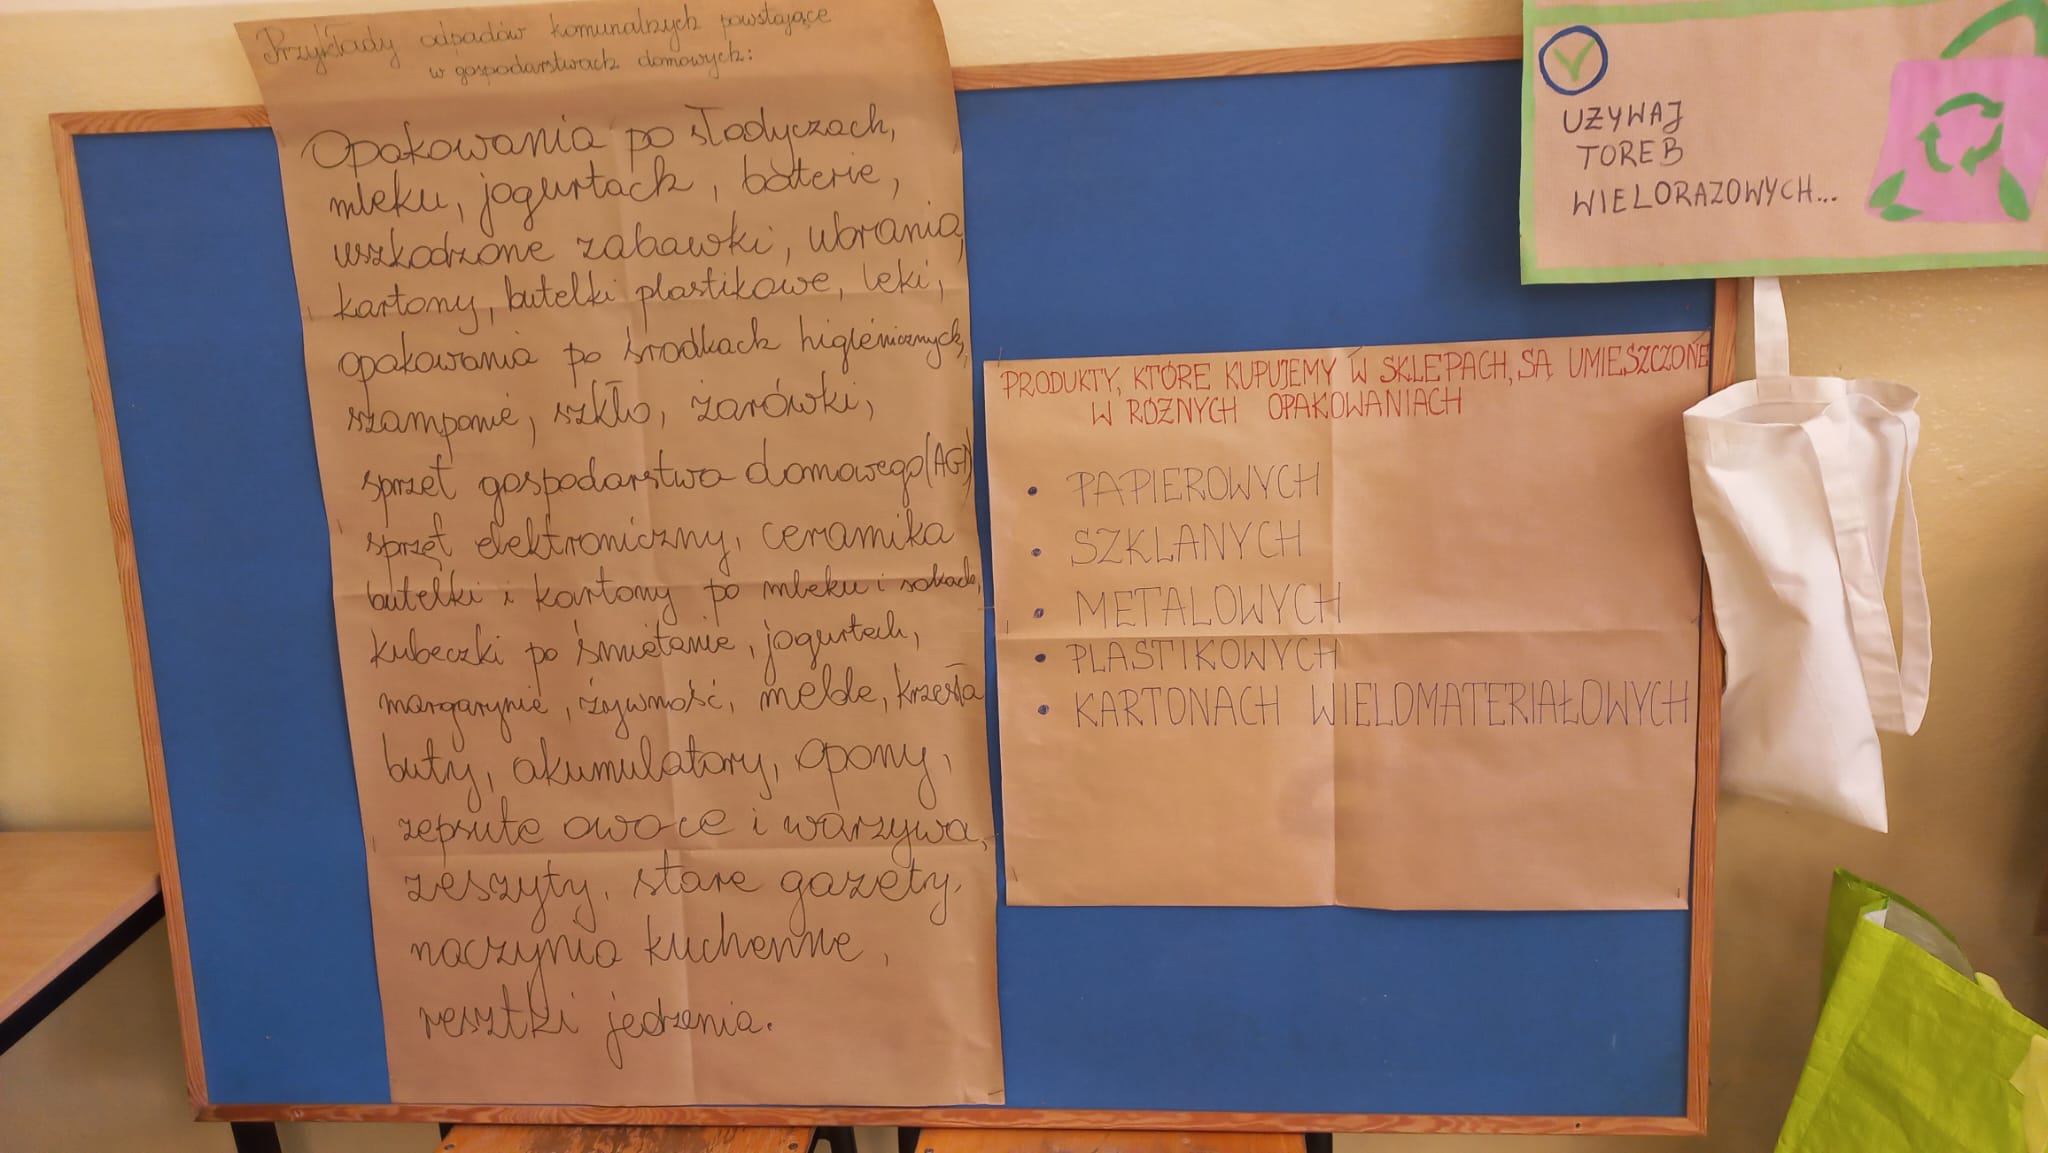 Przykłady odpadów komunalnych powstające
w gospodarstwach domowych:
Opakowania po słodyczach,
mleku, jogurtach, baterie,
uszkodzone zabawki, ubrania,
kartony, butelki plastikowe, leki,
opakowania po środkach higienicznych,
szamponie, szkło, żarówki,
sprzęt gospodarstwa domowego (AGD)
sprzęt elektroniczny, ceramika
butelki i kartony po mleku i sokach,
kubeczki po śmietanie, jogurtach,
margarynie, żywność, meble, krzesła
buty, akumulatory, opony,
zepsute owoce i warzywa,
zeszyty, stare gazety,
naczynia kuchenne,
resztki jedzenia.
PRODUKTY, KTÓRE KUPUJEMY W SKLEPACH, SĄ UMIESZCZONE
W RÓŻNYCH OPAKOWANIACH
• PAPIEROWYCH
• SZKLANYCH
• METALOWYCH
• PLASTIKOWYCH
• KARTONACH WIELOMATERIAŁOWYCH
UŻYWAJ
TOREB
WIELORAZOWYCH...